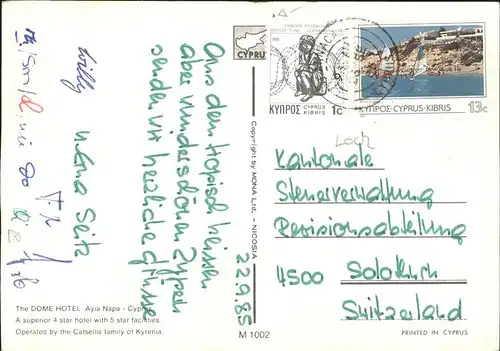 Aus dem tropisch heissen
aber wunderschönen Zypern
senden wir herzliche Grüsse
Willy
Seitz
22.9.85
CYPRUS
Copyright by MONA Ltd. - NICOSIA
M 1002
The DOME HOTEL Ayia Napa - Cyprus
A superior 4 star hotel with 5 star facilities.
Operated by the Catsellis family of Kyrenia.
ΚΥΠΡΟΣ CYPRUS KIBRIS 1c
ΚΥΠΡΟΣ·CYPRUS·KIBRIS 13c
Loch
Kantonale
Steuerverwaltung
Revisionsabteilung
4500 Solothurn
Switzerland
PRINTED IN CYPRUS